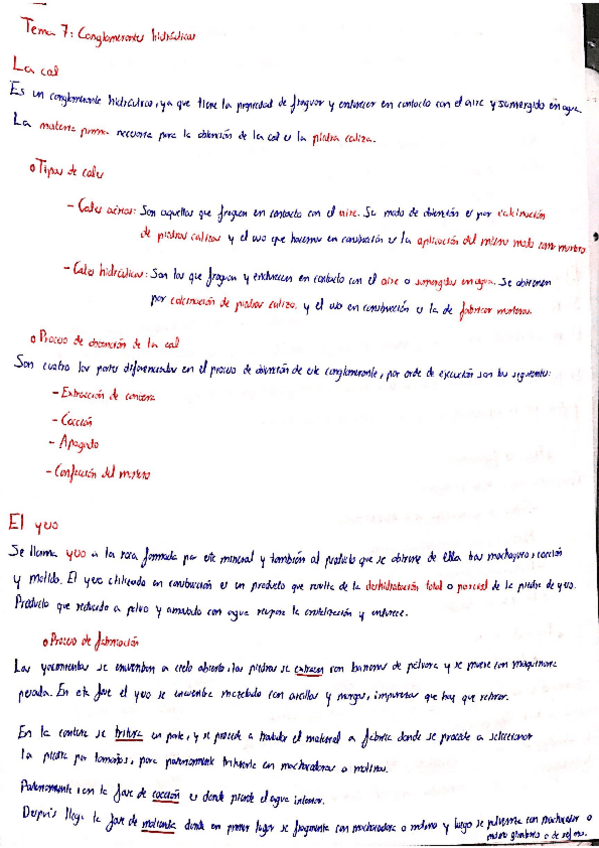 Tema 7: Conglomerantes hidráulicos
La cal
Es un conglomerante hidráulico, ya que tiene la propiedad de fraguar y endurecer en contacto con el aire y sumergido en agua.
La materia prima necesaria para la obtención de la cal es la piedra caliza.
Tipos de cales
- Cales aéreas: Son aquellas que fraguan en contacto con el aire. Su modo de obtención es por calcinación
de piedras calizas y el uso que hacemos en construcción es la aplicación del mismo modo como mortero
- Cales hidráulicas: Son las que fraguan y endurecen en contacto con el aire o sumergidas en agua. Se obtienen
por calcinación de piedras caliza, y el uso en construcción es la de fabricar morteros.
Proceso de obtención de la cal
Son cuatro las partes diferenciadas en el proceso de obtención de este conglomerante, por orden de ejecución son las siguientes:
- Extracción de cantera
- Cocción
- Apagado
- Confección del mortero
El yeso
Se llama yeso a la roca formada por este mineral y también al producto que se obtiene de ella tras machaqueo, cocción
y molido. El yeso utilizado en construcción es un producto que resulta de la deshidratación total o parcial de la piedra de yeso.
Producto que reducido a polvo y amasado con agua recupera la cristalización y endurece.
Proceso de fabricación
Los yacimientos se encuentran a cielo abierto, las piedras se extraen con barrenos de pólvora y se mueve con maquinaria
pesada. En esta fase el yeso se encuentra mezclado con arcillas y margas, impurezas que hay que retirar.
En la cantera se tritura en parte, y se procede a trasladar el material a fábrica donde se procede a seleccionar
la piedra por tamaños, para posteriormente triturarla en machacadoras o molinos.
Posteriormente, con la fase de cocción es donde pierde el agua interior.
Después llega la fase de molienda donde en primer lugar se fragmenta con machacadora o molino y luego se pulveriza con machacador o
molino